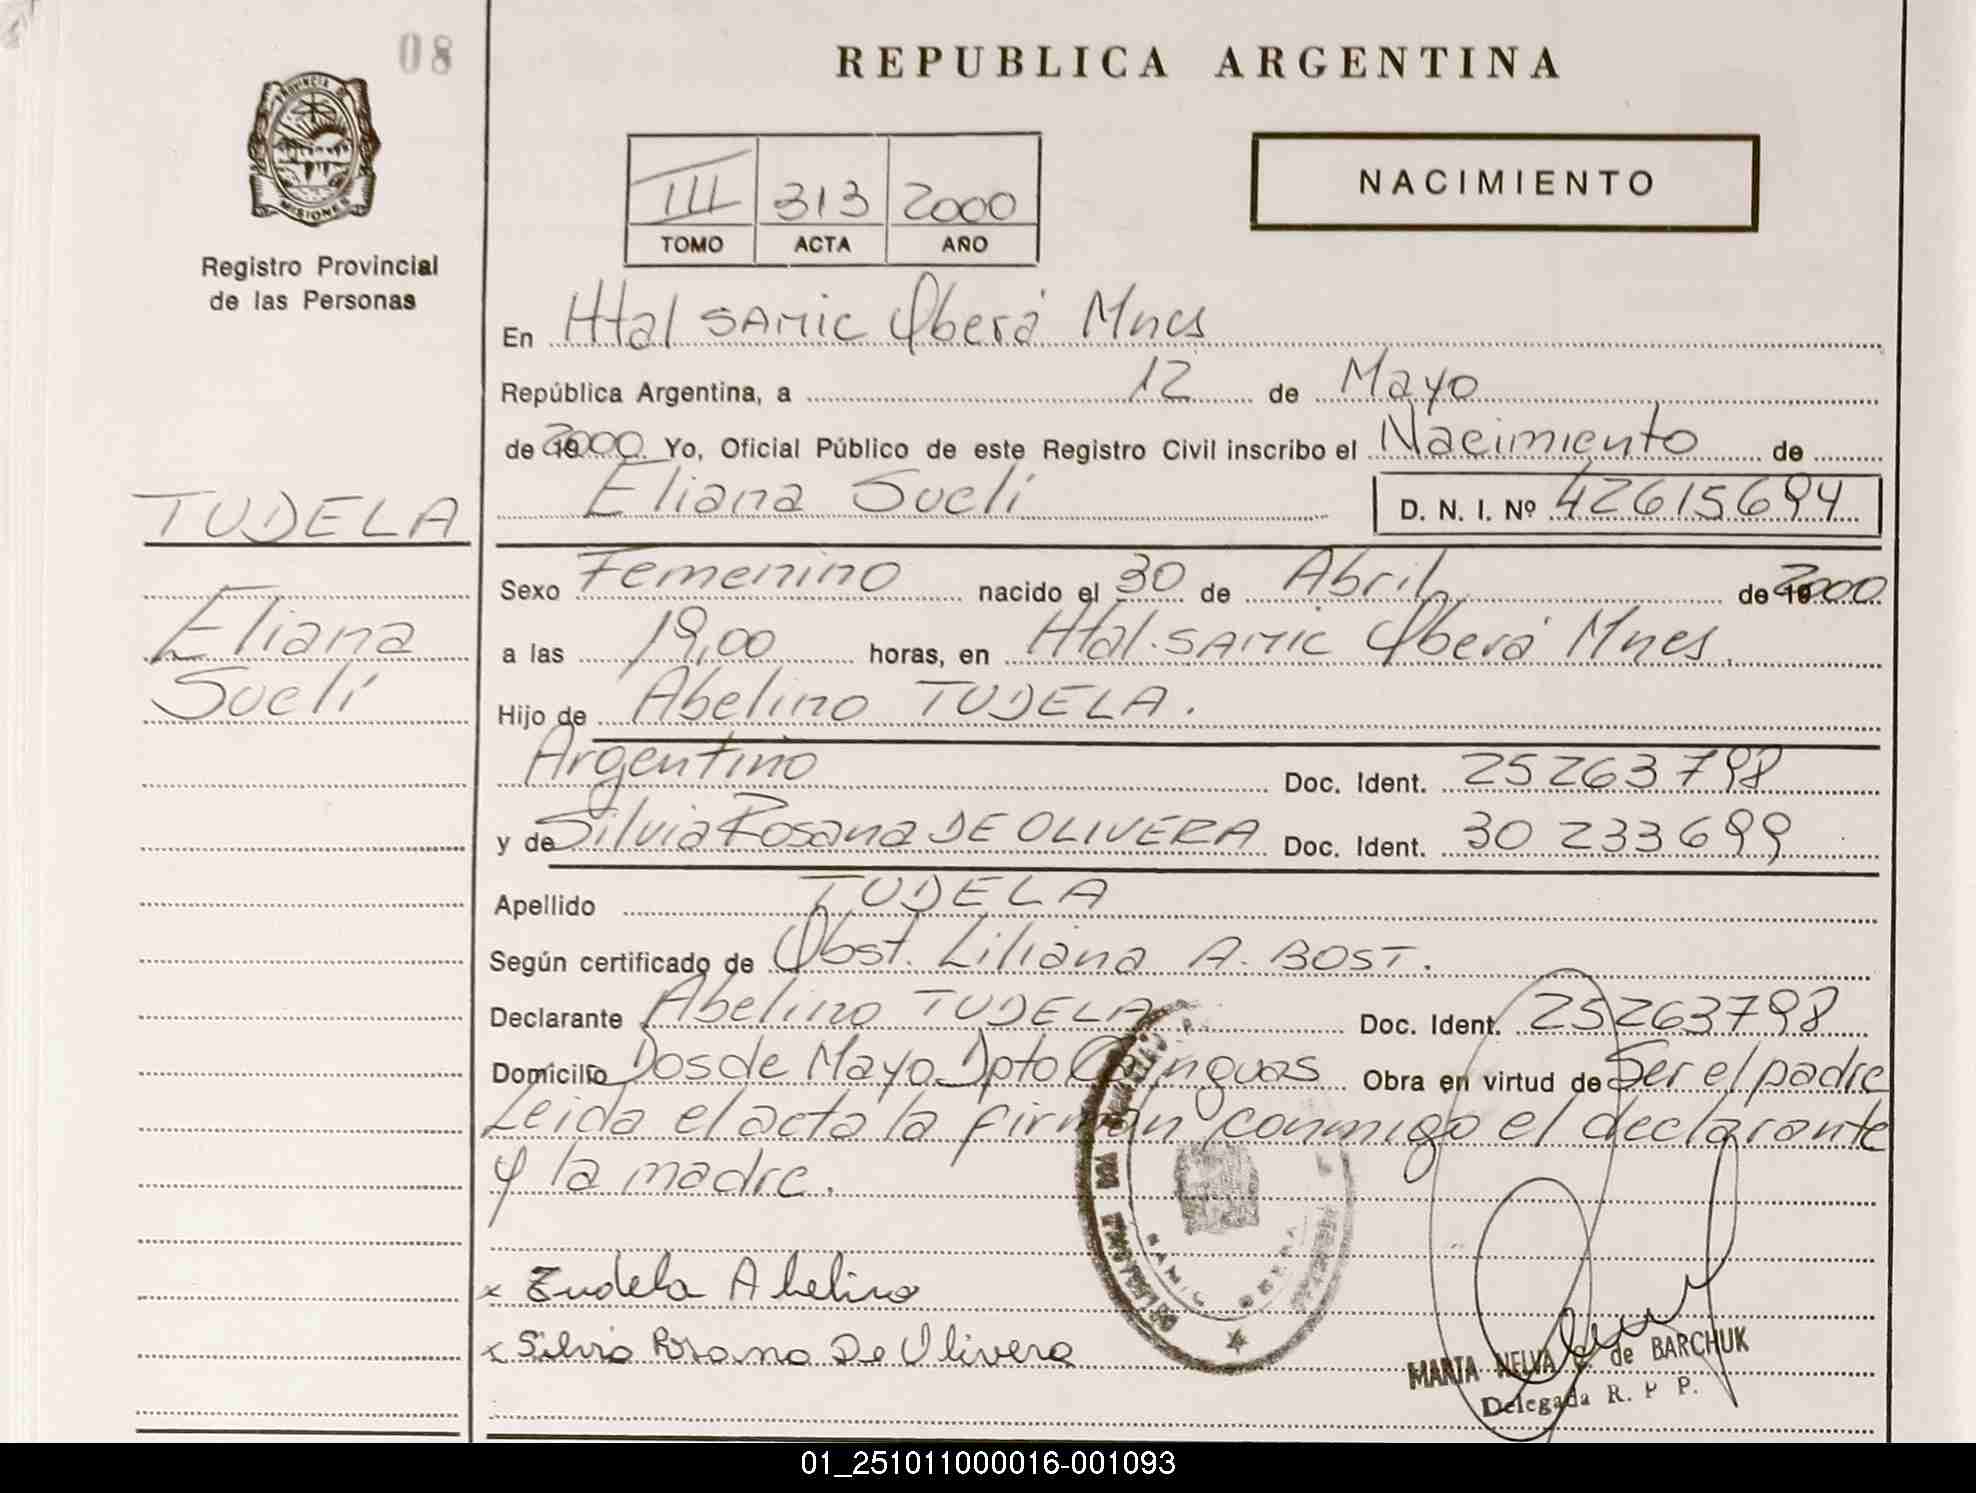 08
REPUBLICA ARGENTINA
PROVINCIA DE
MISIONES
Registro Provincial
de las Personas
III 313 2000
TOMO ACTA AÑO
NACIMIENTO
En Htal SAMIC Oberá Mnes
República Argentina, a 12 de Mayo
de 2000 Yo, Oficial Público de este Registro Civil inscribo el Nacimiento de
Eliana Suelí D. N. I. Nº 42615694
TUDELA
Eliana
Suelí
Sexo Femenino nacido el 30 de Abril de 2000
a las 19,00 horas, en Htal. SAMIC Oberá Mnes.
Hijo de Abelino TUDELA.
Argentino Doc. Ident. 25263798
y de Silvia Rosana DE OLIVERA Doc. Ident. 30 233699
Apellido TUDELA
Según certificado de Obst. Liliana A. BOST.
Declarante Abelino TUDELA Doc. Ident. 25263798
Domicilio Dos de Mayo Dpto Cainguas Obra en virtud de Ser el padre
Leida el acta la firman conmigo el declarante
y la madre.
x Tudela Abelino
x Silvia Rosana De Olivera
SAMIC OBERA
MARTA NELVA C. de BARCHUK
Delegada R. P. P.
01_251011000016-001093